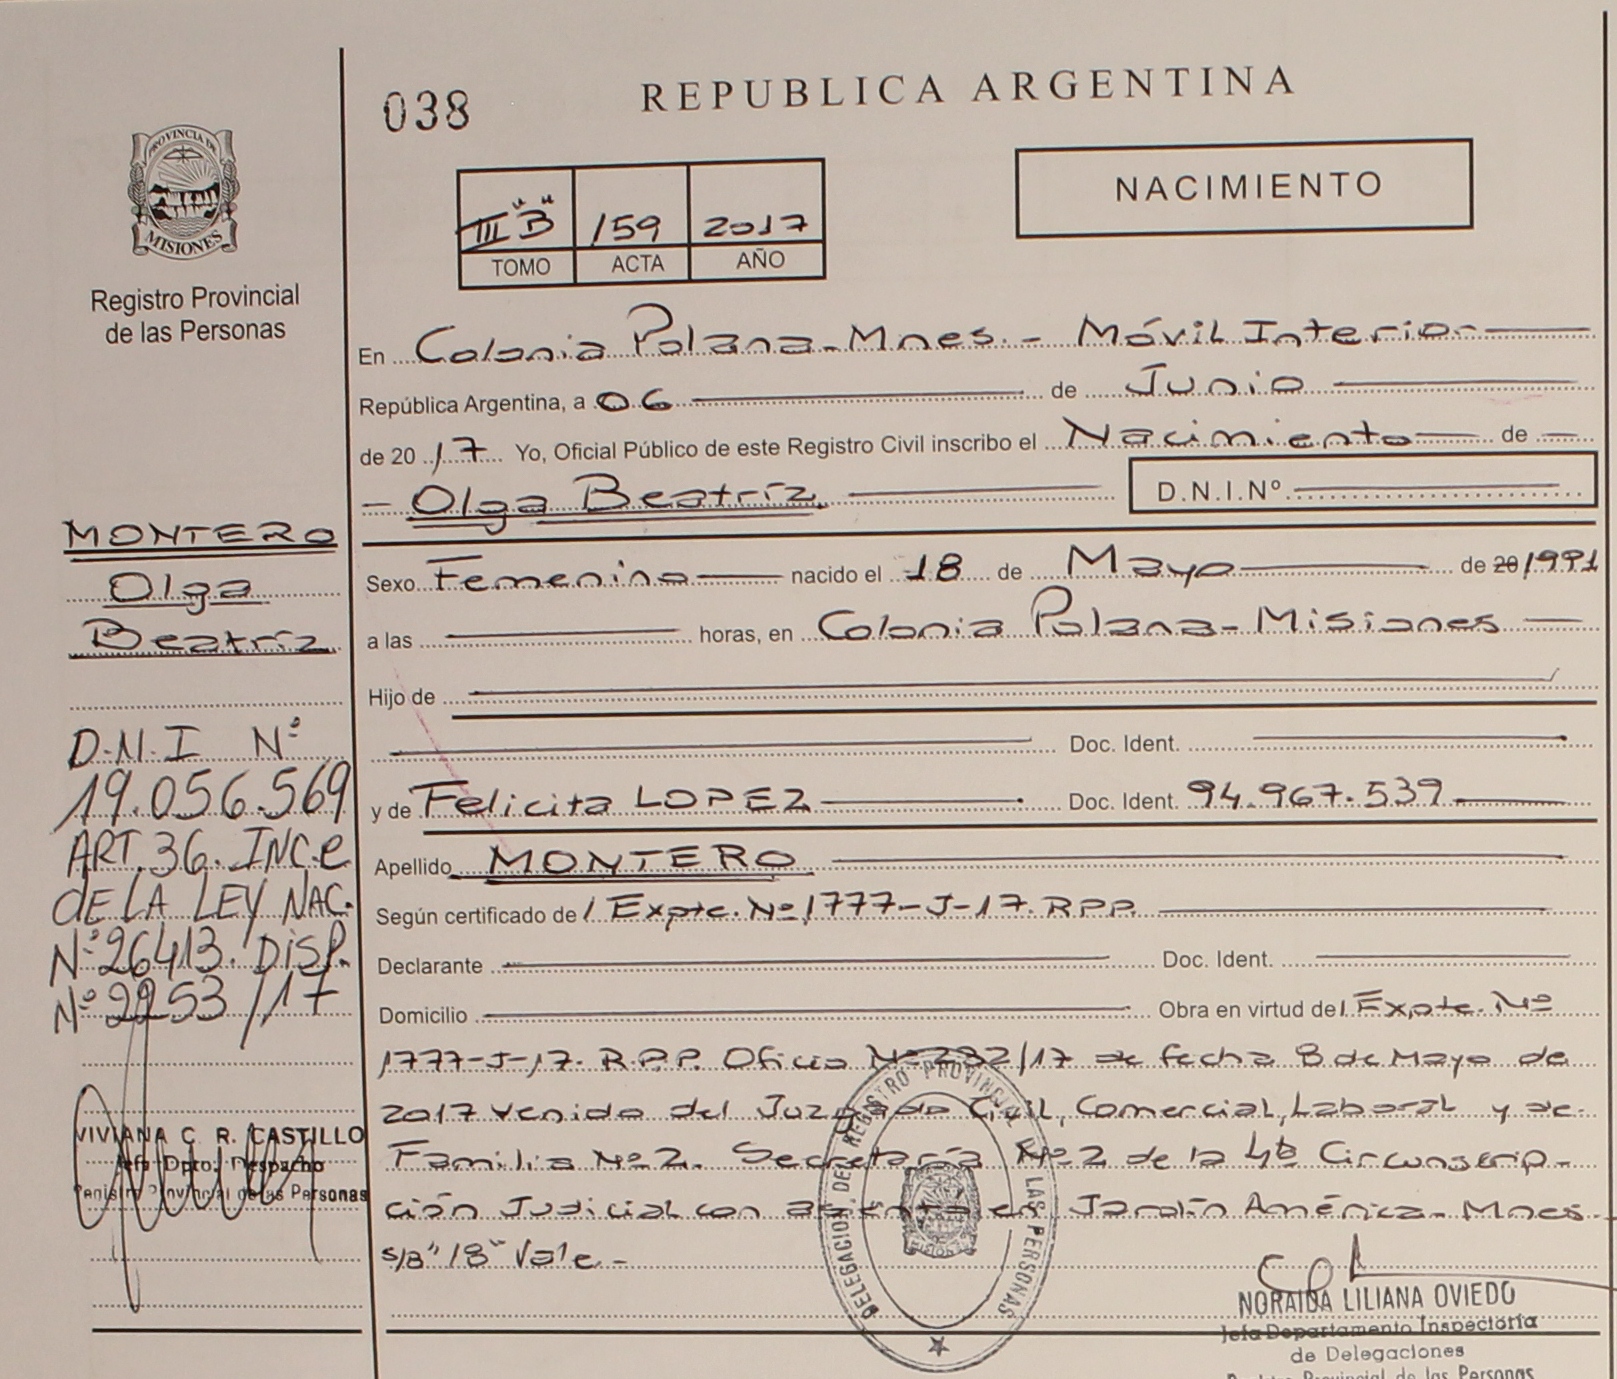 038
REPUBLICA ARGENTINA
III "B" 159 2017
TOMO ACTA AÑO
NACIMIENTO
PROVINCIA DE
MISIONES
Registro Provincial
de las Personas
En Colonia Polana-Mnes.- Móvil Interior
República Argentina, a 06 de Junio
de 2017 Yo, Oficial Público de este Registro Civil inscribo el Nacimiento de
- Olga Beatríz. D.N.I.Nº
Sexo Femenino nacido el 18 de Mayo de 20 1991
a las horas, en Colonia Polana-Misiones
Hijo de
Doc. Ident.
y de Felicita LOPEZ Doc. Ident. 94.967.539
Apellido MONTERO
Según certificado de / Expte. Nº 1777-J-17. R.P.P.
Declarante Doc. Ident.
Domicilio Obra en virtud de l Expte. Nº
1777-J-17. R.P.P. Oficio Nº 232/17 de fecha 8 de Mayo de
2017 venido del Juzgado Civil, Comercial, Laboral y de
Familia Nº 2. Secretaría Nº 2 de la 4ta Circunscrip-
ción Judicial con asiento en Jardín América-Mnes.
s/b "18" Vale.-
MONTERO
Olga
Beatríz.
D.N.I Nº
19.056.569
ART.36. INC.e
DE LA LEY NAC.
Nº 26413. DISP.
Nº 2253/17
VIVIANA C. R. CASTILLO
Jefa Dpto. Despacho
Registro Provincial de las Personas
DELEGACION DEL REGISTRO PROVINCIAL DE LAS PERSONAS
MISIONES
NORAIDA LILIANA OVIEDO
Jefa Departamento Inspectoría
de Delegaciones
Registro Provincial de las Personas